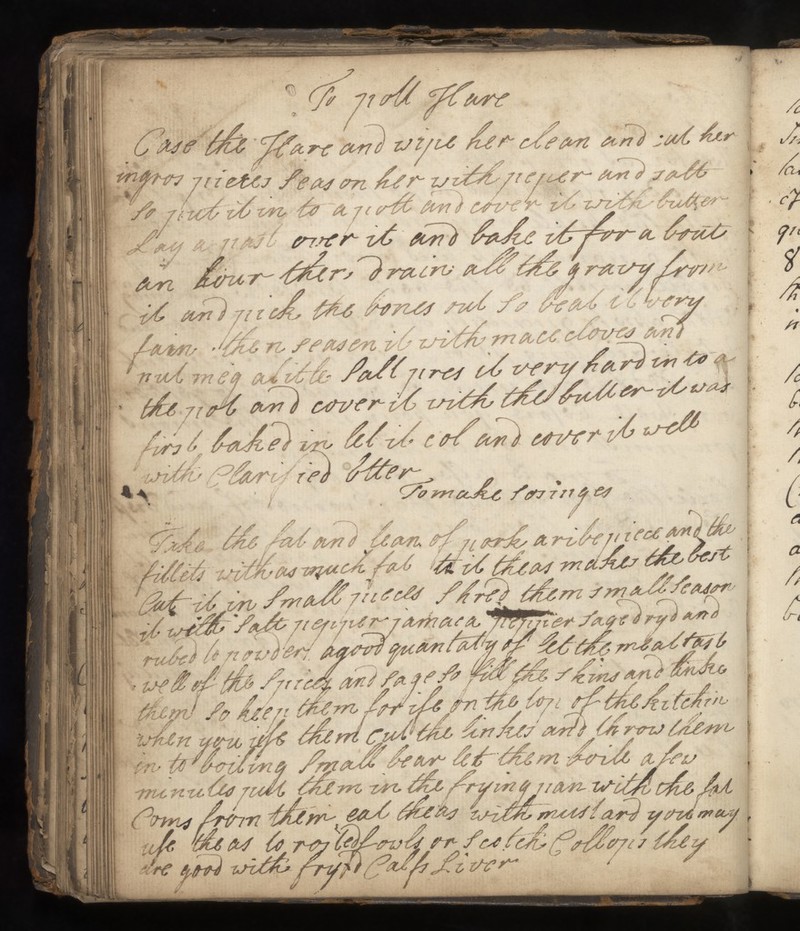 To pott Hare
Case the Hare and wipe her clean and cut her
ingros pieces Season her with peper and salt
So put it in to a pott and cover it with butter
Lay a past over it and bake it for a bout
an hour then drain all the gravy from
it and pick the bones out So beat it very
then seasen it with mace cloves and
nutmeg a litle Salt pres it very hard in to
the pot and cover it with the butter it was
first baked in let it col and cover it well
with Clarified btter
To make Sosinges
Take the fat and lean of pork a ribe piece and the
fillits with as much fat it theas makes the best
Cut it in Small pieces Shred them small Season
it with Salt pepper jamaca pepper Sage dryd and
rubed to powder a good quantaty of let the meat tast
well of the Spices and sage So fill the skins and linke
them So keep them for ise on the top of the kitchin
when you ise them Cut the linkes and throw them
in to boiling Small bear let them boile a few
minutes put them in the frying pan with the fat
Coms from them eat theas with mustard you may
use theas to rosted fowls or Scotch Collops they
are good with fryd Calfs Liver